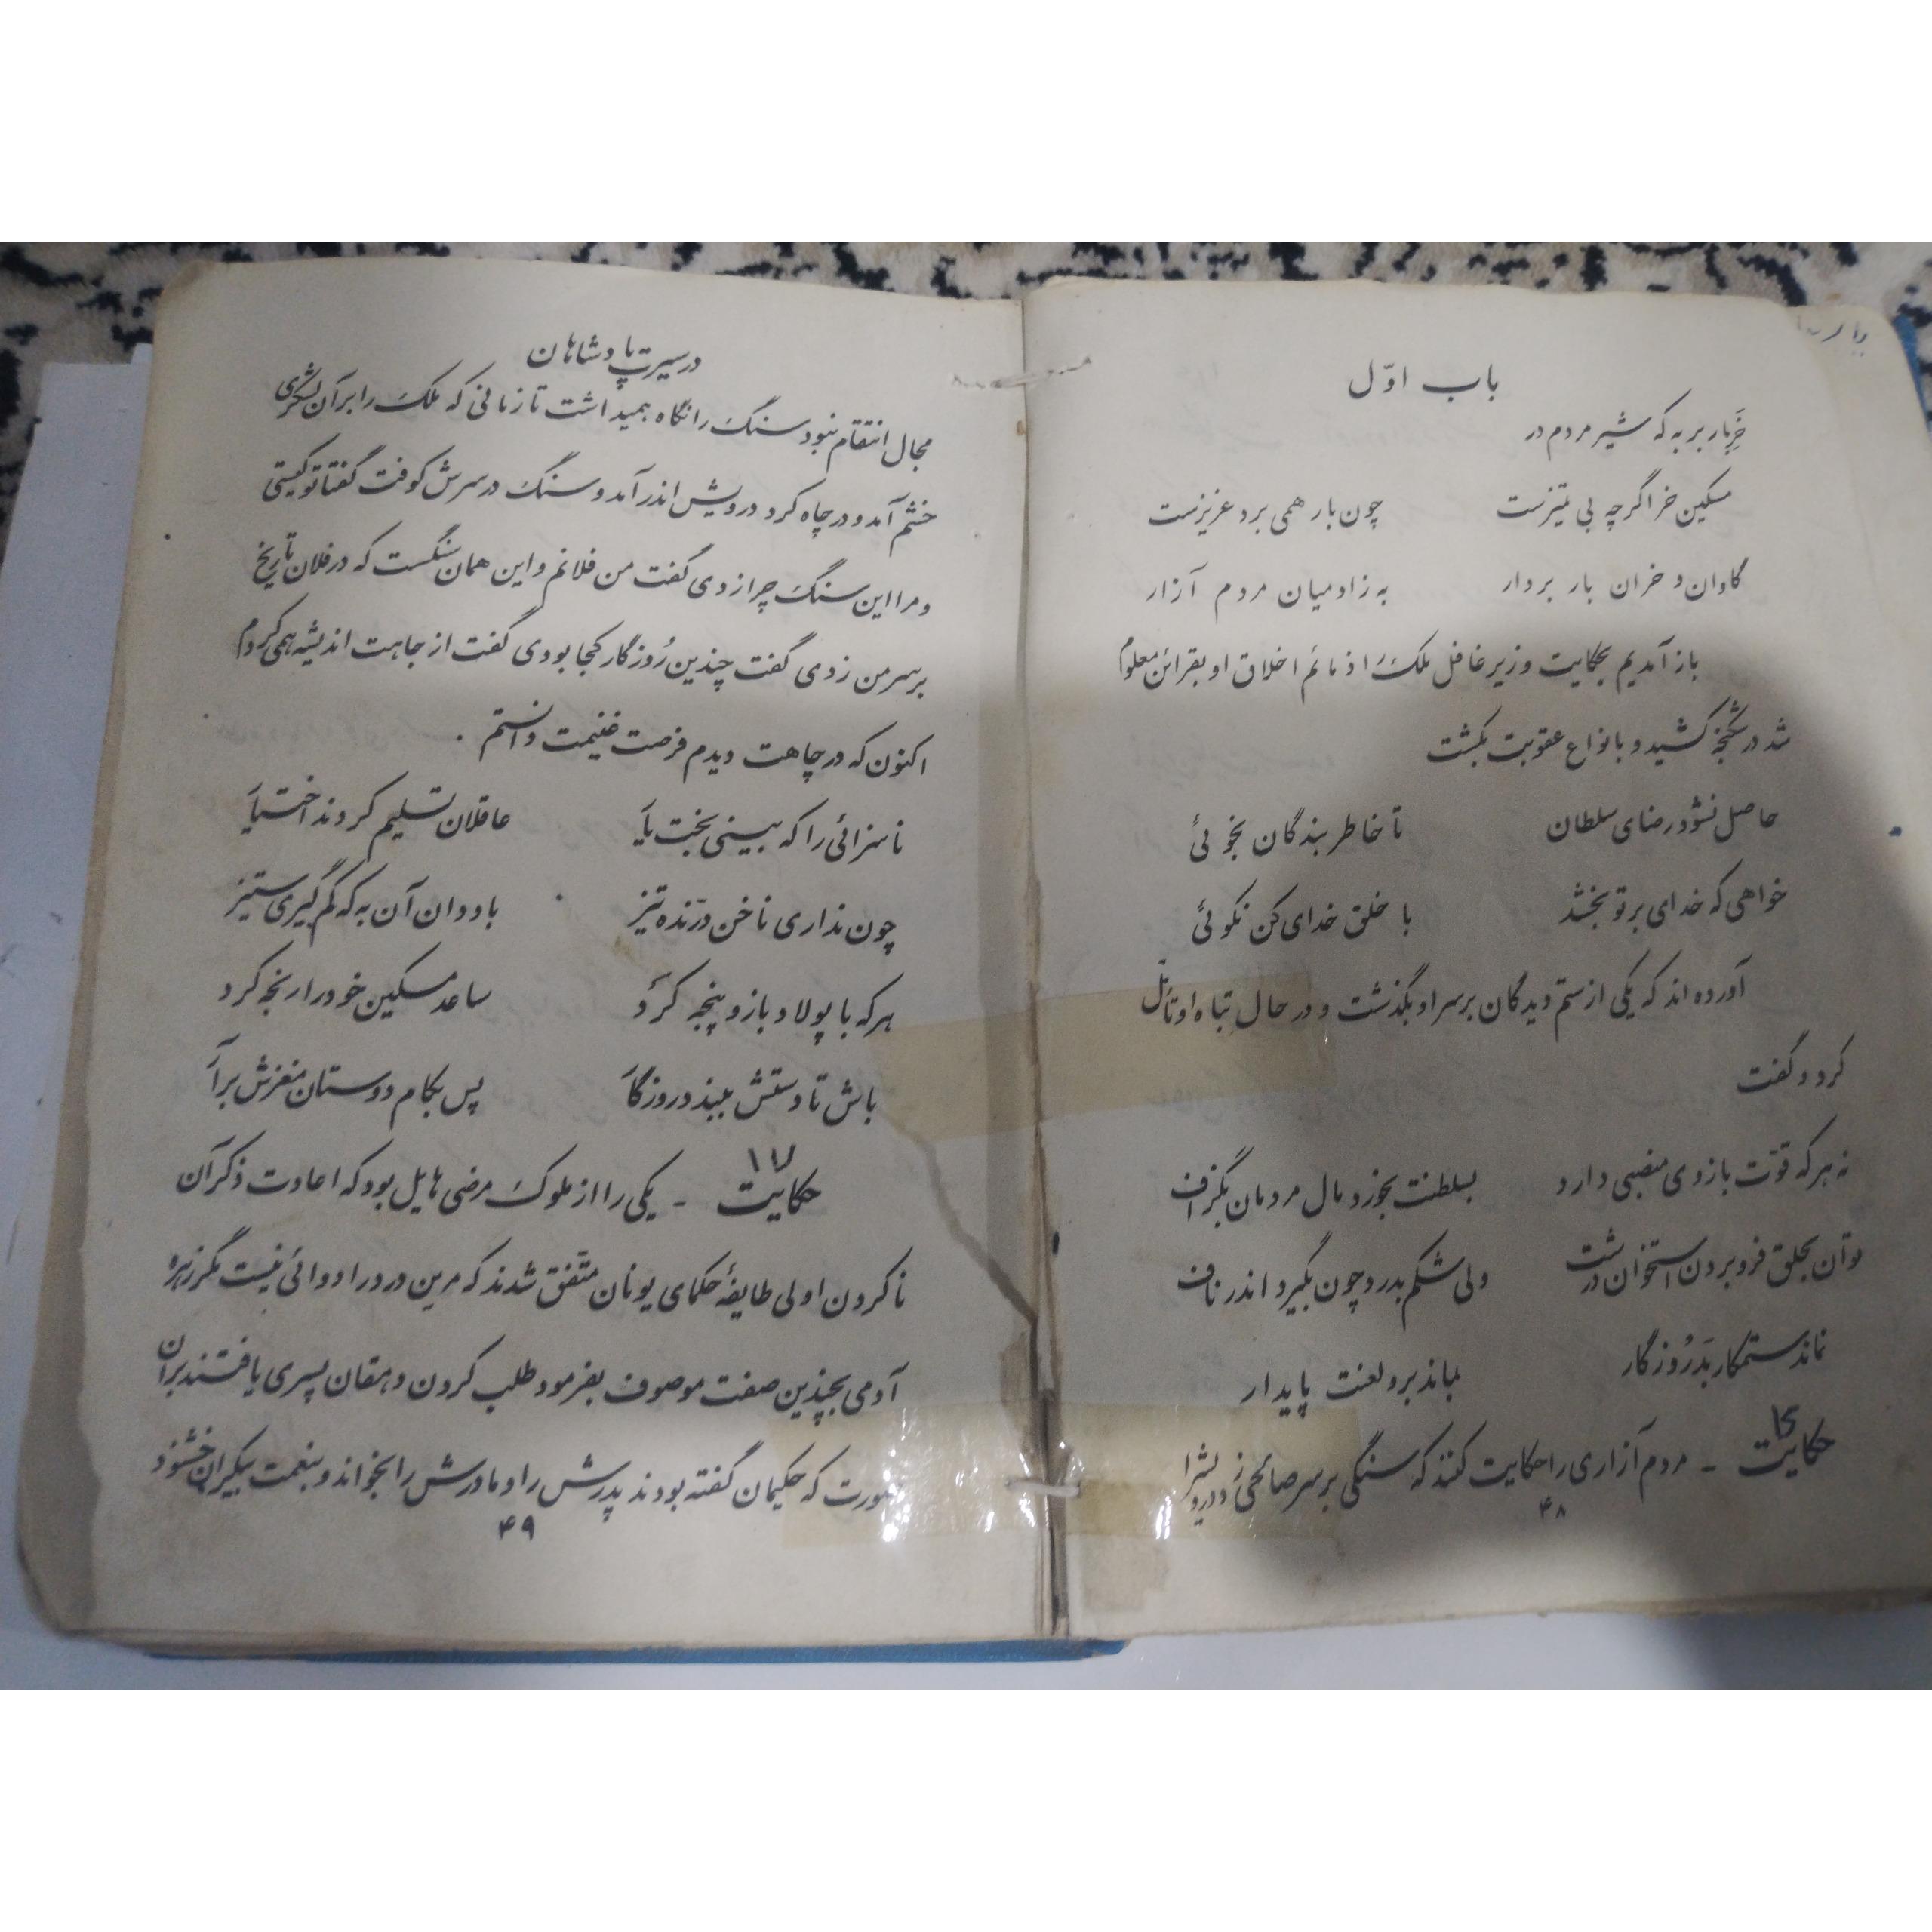 باب اوّل
خرِ باربر به که شیر مردم در
مسکین خر اگرچه بی تمیزست چون بار همی برد عزیزست
گاوان و خران بار بردار به ز ادمیان مردم آزار
باز آمدیم بحکایت وزیر غافل ملک را ذمائم اخلاق او بقرائن معلوم
شد در شکنجه کشید و بانواع عقوبت بکشت
حاصل نشود رضای سلطان تا خاطر بندگان بجوئی
خواهی که خدای بر تو بخشد با خلق خدای کن نکوئی
آورده اند که یکی از ستم دیدگان بر سر او بگذشت و در حال تباه او تأمّل
کرد و گفت
نه هر که قوّت بازوی منصبی دارد بسلطنت بخورد مال مردمان بگزاف
توان بحلق فرو بردن استخوان درشت ولی شکم بدرد چون بگیرد اندر ناف
نماند ستمکار بد رُوزگار بماند برو لعنت پایدار
حکایت - مردم آزاری را حکایت کنند که سنگی بر سر صالحی زد درویش را
۴۸
در سیرت پادشاهان
مجال انتقام نبود سنگ را نگاه همیداشت تا زمانی که ملک را بر آن لشگری
خشم آمد و در چاه کرد درویش اندر آمد و سنگ در سرش کوفت گفتا تو کیستی
و مرا این سنگ چرا زدی گفت من فلانم و این همان سنگست که در فلان تاریخ
بر سر من زدی گفت چندین رُوزگار کجا بودی گفت از جاهت اندیشه همی کردم
اکنون که در چاهت دیدم فرصت غنیمت دانستم .
ناسزائی را که بینی بخت یار عاقلان تسلیم کردند اختیار
چون نداری ناخن درّنده تیز با ددان آن به که کم گیری ستیز
هر که با پولاد بازو پنجه کرد ساعد مسکین خود را رنجه کرد
باش تا دستش ببندد روزگار پس بکام دوستان مغزش برآر
حکایت - یکی را از ملوک مرضی هایل بود که اعادت ذکر آن
ناکردن اولی طایفهٔ حکمای یونان متّفق شدند که مرین درد را دوائی نیست مگر زهره
آدمی بچندین صفت موصوف بفرمود طلب کردن دهقان پسری یافتند بر آن
صورت که حکیمان گفته بودند پدرش را و مادرش را بخواند و بنعمت بیکران خشنود
۴۹